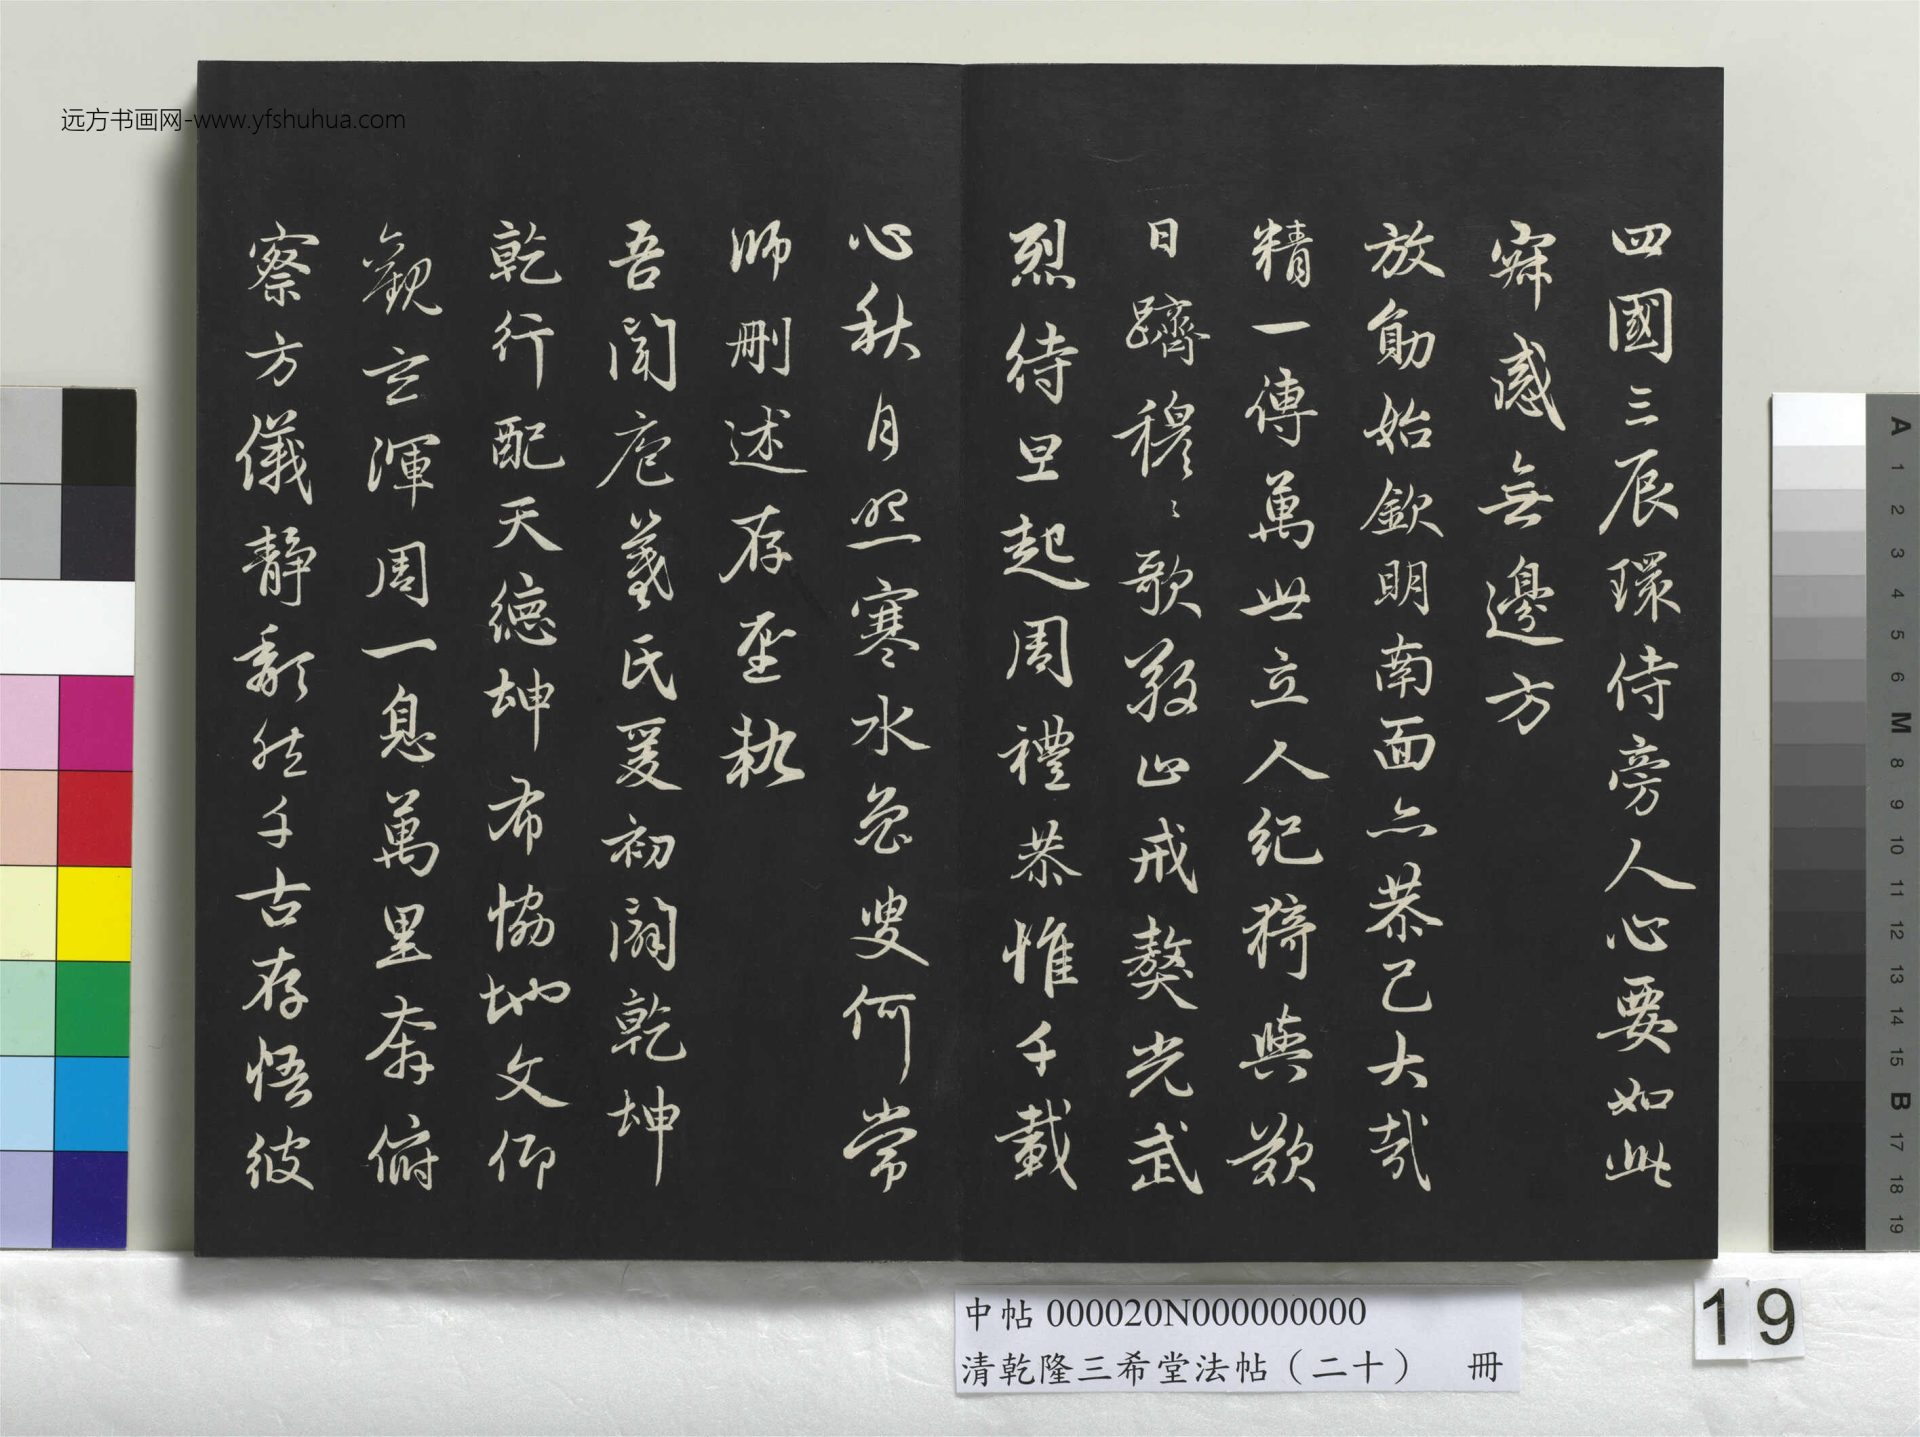 四國三辰環侍旁人心要如此
寂感無邊方
放勛始欽明南面亦恭己大哉
精一傳萬世立人紀猗與歎
日躋穆〻歌敬止戒獒光武
烈待旦起周禮恭惟千載
心秋月照寒水魯叟何常
師刪述存聖軌
吾聞庖羲氏爰初闢乾坤
乾行配天德坤布協地文仰
觀玄渾周一息萬里奔俯
察方儀靜頹然千古存悟彼
远方书画网-www.yfshuhua.com
中帖 000020N000000000
清乾隆三希堂法帖（二十） 冊
19
A 1 2 3 4 5 6 M 8 9 10 11 12 13 14 15 B 17 18 19